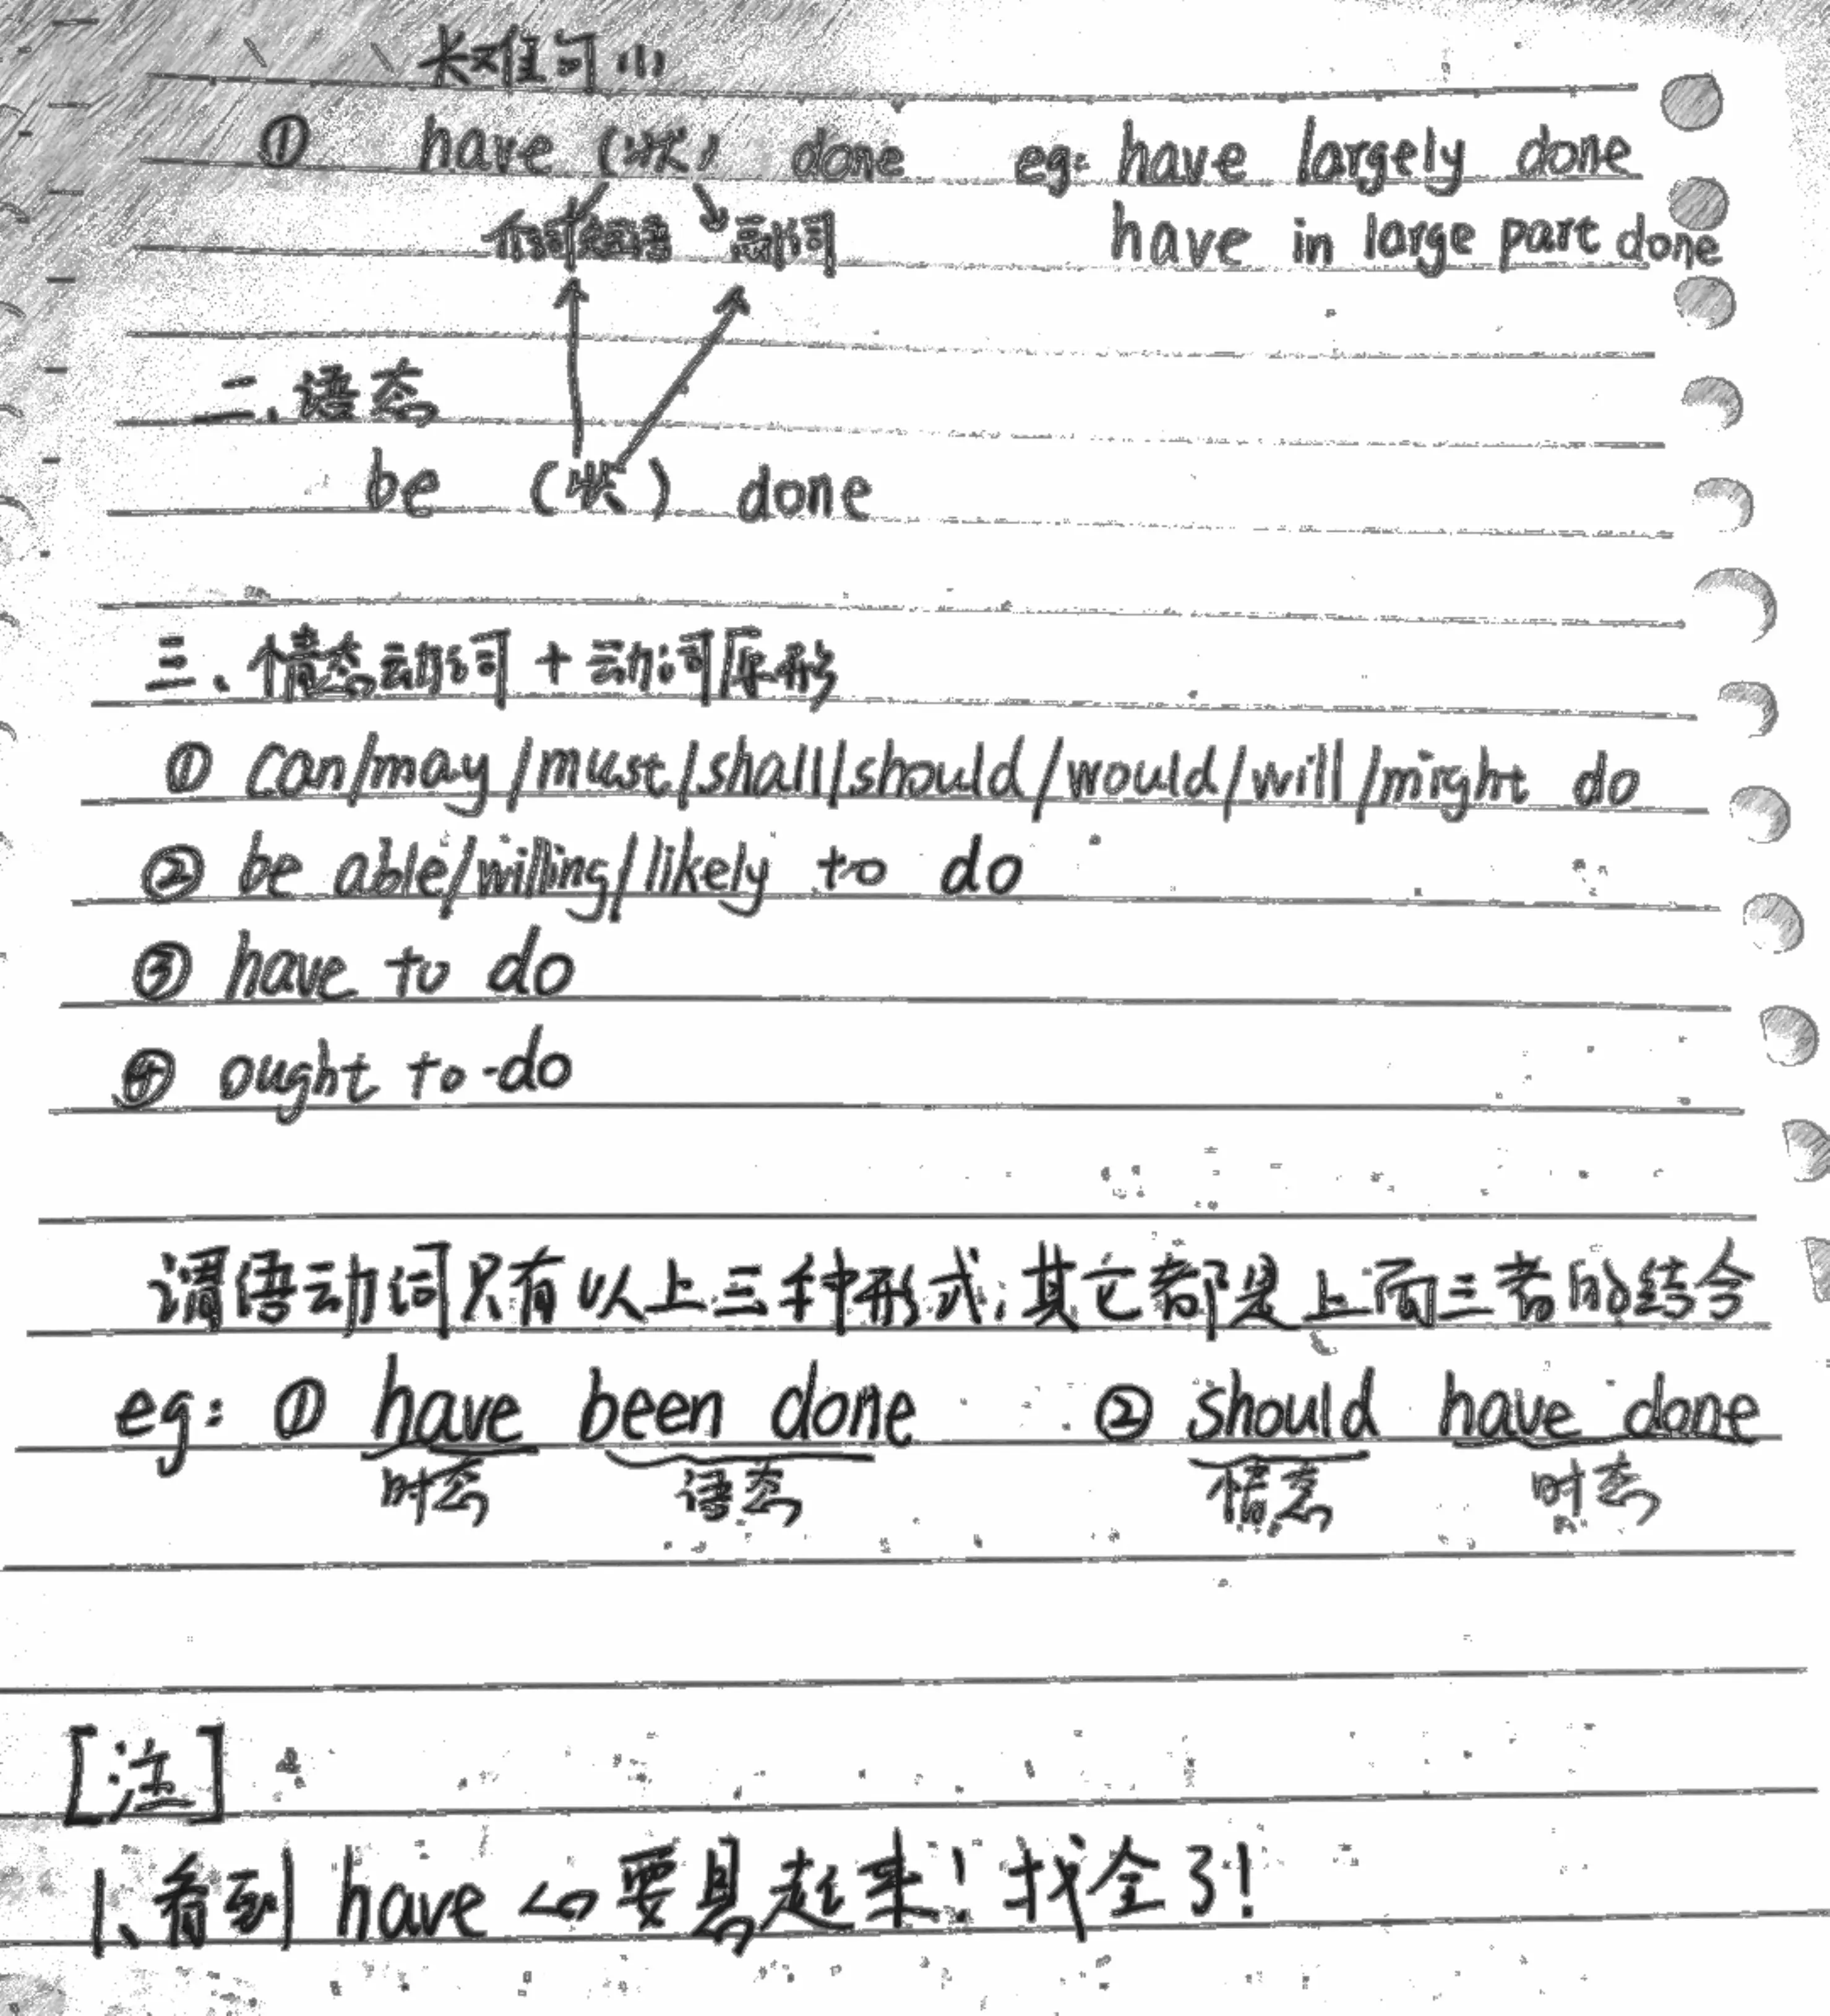 长难句
① have (状) done eg: have largely done
介词短语 副词 have in large part done
二、语态
be (状) done
三、情态动词 + 动词原形
① can/may/must/shall/should/would/will/might do
② be able/willing/likely to do
③ have to do
④ ought to do
谓语动词只有以上三种形式,其它都是上面三者的结合
eg: ① have been done ② should have done
时态 语态 情态 时态
[注]
1、看到 have 心要悬起来!找全了!